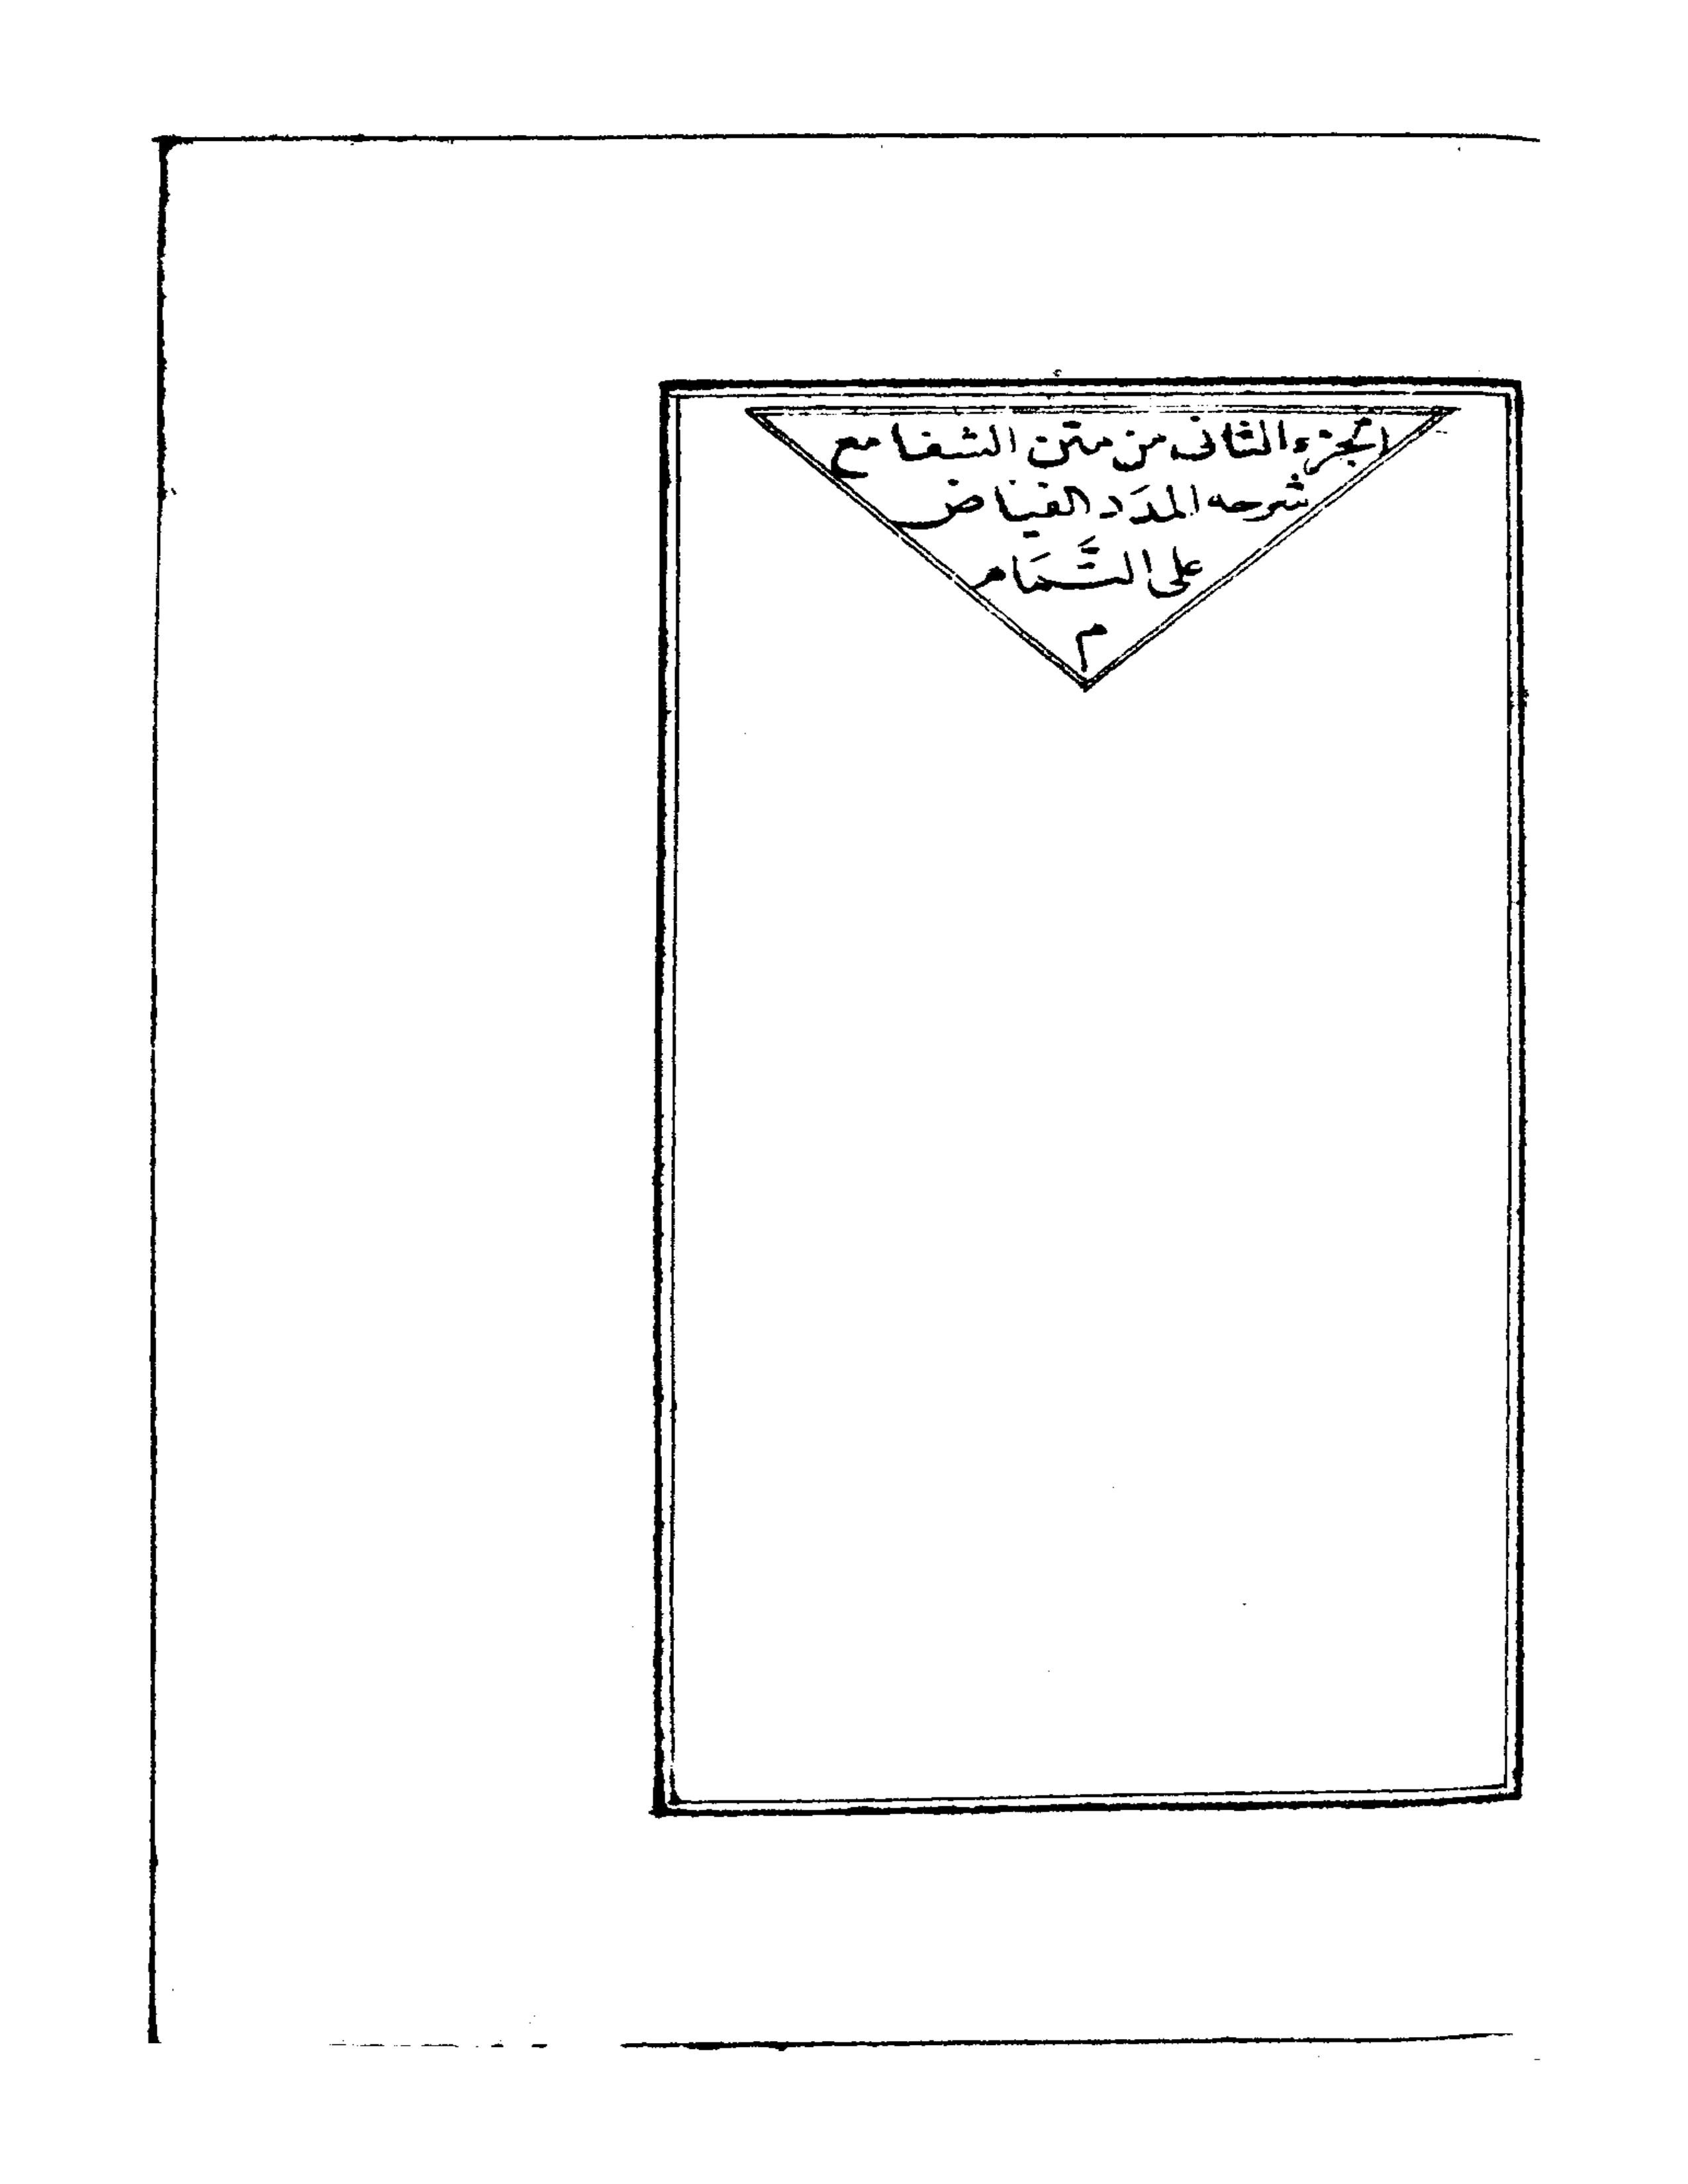 الجزء الثانى من متن الشفا مع
شرحه المدَد الفياض
على التَّمَام
م